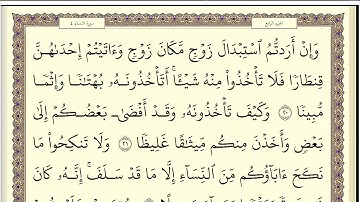 الجزء الرابع
سورة النساء ٤
وَإِنْ أَرَدتُّمُ ٱسْتِبْدَالَ زَوْجٍ مَّكَانَ زَوْجٍ وَءَاتَيْتُمْ إِحْدَىٰهُنَّ
قِنطَارًا فَلَا تَأْخُذُوا۟ مِنْهُ شَيْـًٔا ۚ أَتَأْخُذُونَهُۥ بُهْتَـٰنًا وَإِثْمًا
مُّبِينًا ٢٠ وَكَيْفَ تَأْخُذُونَهُۥ وَقَدْ أَفْضَىٰ بَعْضُكُمْ إِلَىٰ
بَعْضٍ وَأَخَذْنَ مِنكُم مِّيثَـٰقًا غَلِيظًا ٢١ وَلَا تَنكِحُوا۟ مَا
نَكَحَ ءَابَآؤُكُم مِّنَ ٱلنِّسَآءِ إِلَّا مَا قَدْ سَلَفَ ۚ إِنَّهُۥ كَانَ